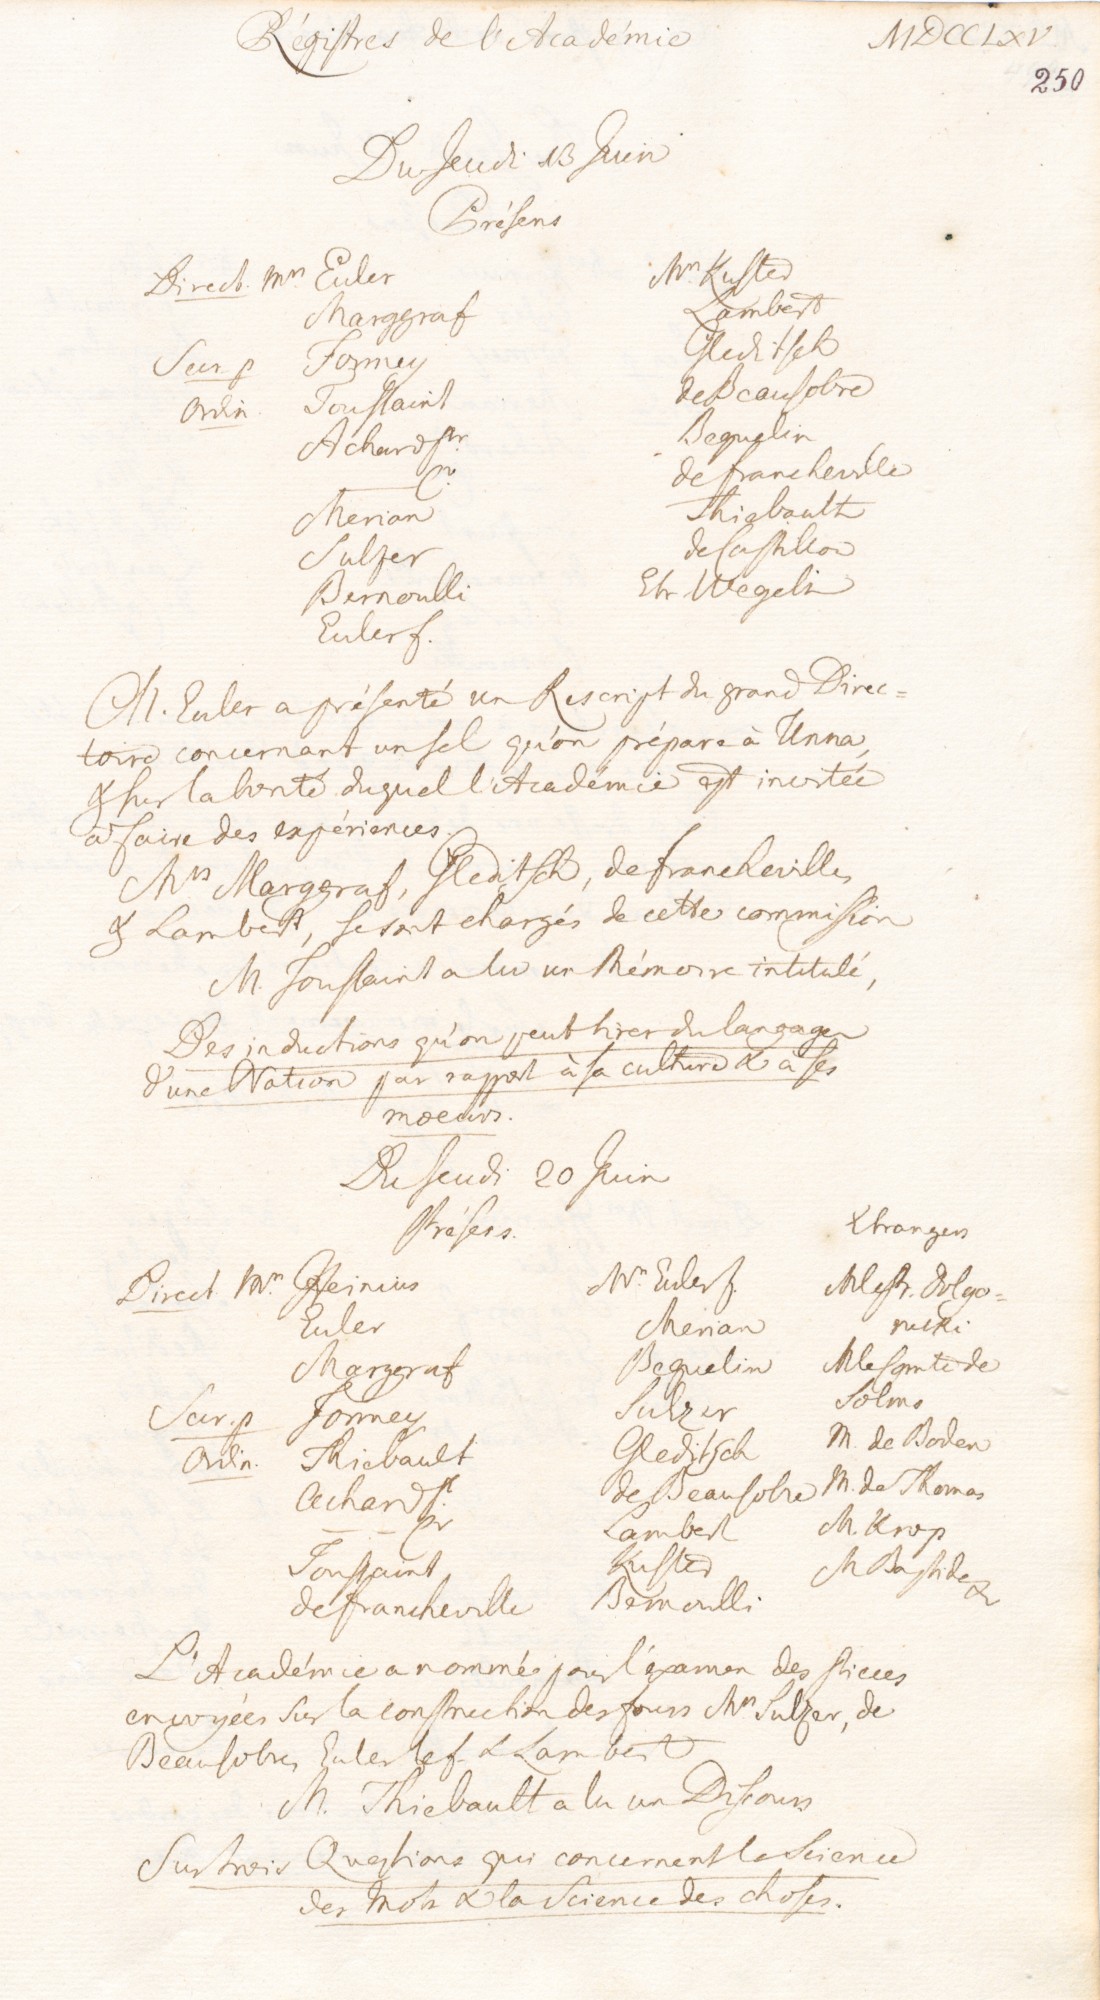 Régistres de l'Académie MDCCLXV
250
Du Jeudi 13 Juin
Présens
Direct. Mrs Euler
Marggraf
Secr. p Formey
Ordin. Toussaint
Achard Pr
Merian
Sulzer
Bernoulli
Euler f.
Mrs Kuster
Lambert
Gleditsch
de Beausobre
Beguelin
de francheville
Thiebault
de Castillon
Etr. Wegelin
M. Euler a présenté un Rescript du grand Direc=
toire concernant un sel qu'on prépare à Unna,
& sur la bonté duquel l'Académie est invitée
à faire des expériences.
Mrs Marggraf, Gleditsch, de francheville,
& Lambert, se sont chargés de cette commission
M. Toussaint a lu un Mémoire intitulé,
Des inductions qu'on peut tirer du langage
d'une Nation par rapport à sa culture & à ses
moeurs.
Du Jeudi 20 Juin
Présens.
Direct. Mrs Heinius
Euler
Marggraf
Secr. p Formey
Ordin. Thiebault
Achard
Toussaint
de francheville
Mrs Euler f.
Merian
Beguelin
Sulzer
Gleditsch
de Beausobre
Lambert
Kuster
Bernoulli
Etrangers
M le Pr. Dolgo=
rucki
M le Comte de
Solms
M. de Boden
M. de Thomas
M. Krop
M Bastide &
L'Académie a nommé pour l'examen des pieces
envoyées sur la construction des fours Mrs Sulzer, de
Beausobre, Euler le f. & Lambert
M. Thiebault a lu un Discours
Sur trois Questions qui concernent la Science
des Mots & la Science des choses.